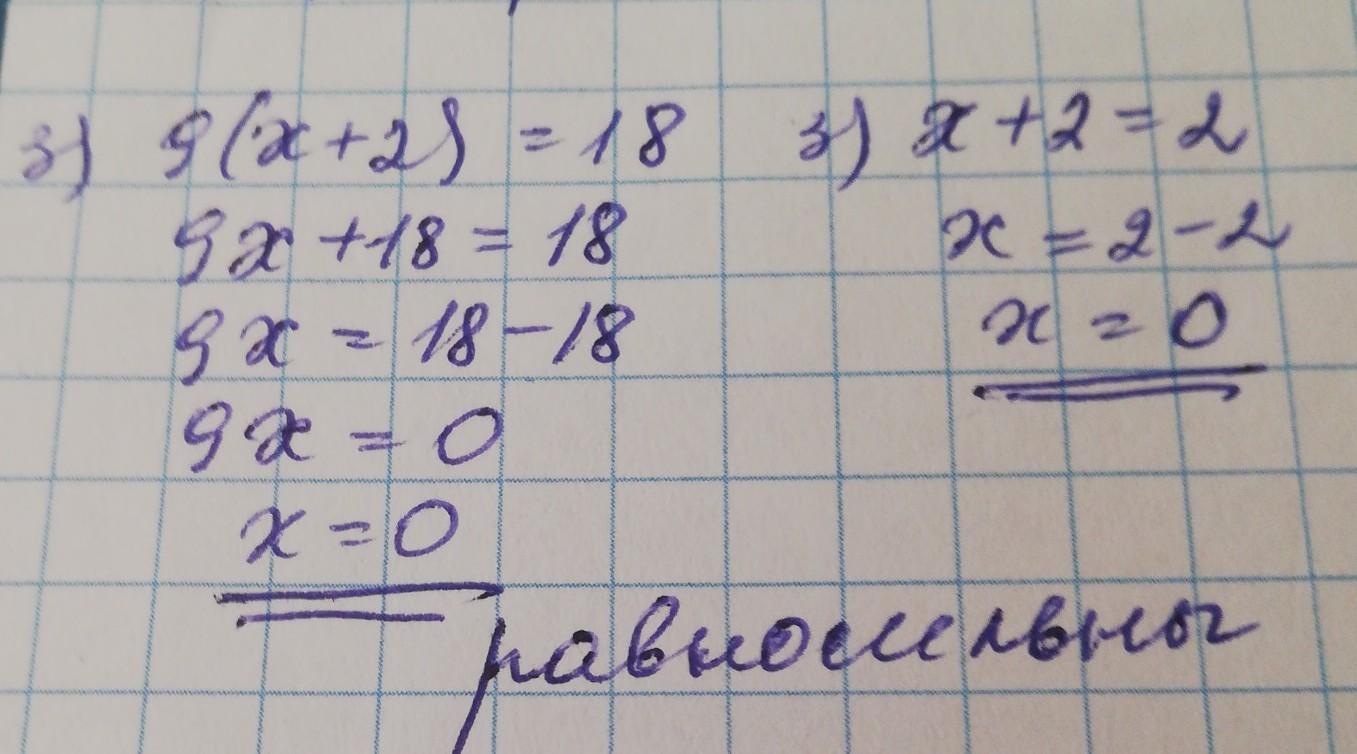 з) 9(x+2) = 18
9x +18 = 18
9x = 18-18
9x = 0
x = 0
з) x+2=2
x = 2-2
x = 0
равносильны